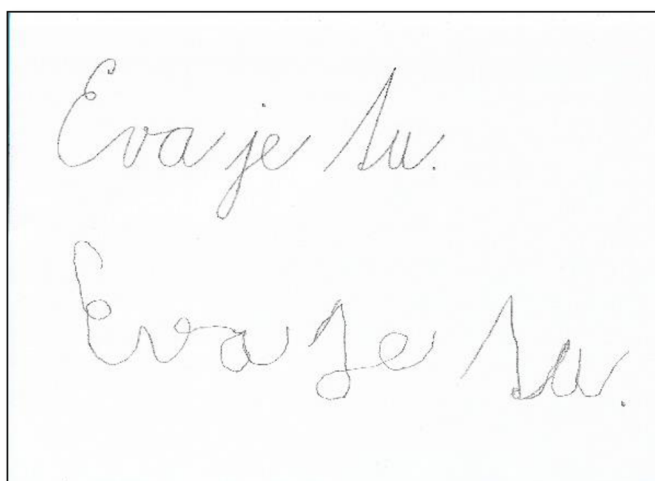 Eva je tu.
Eva je tu.